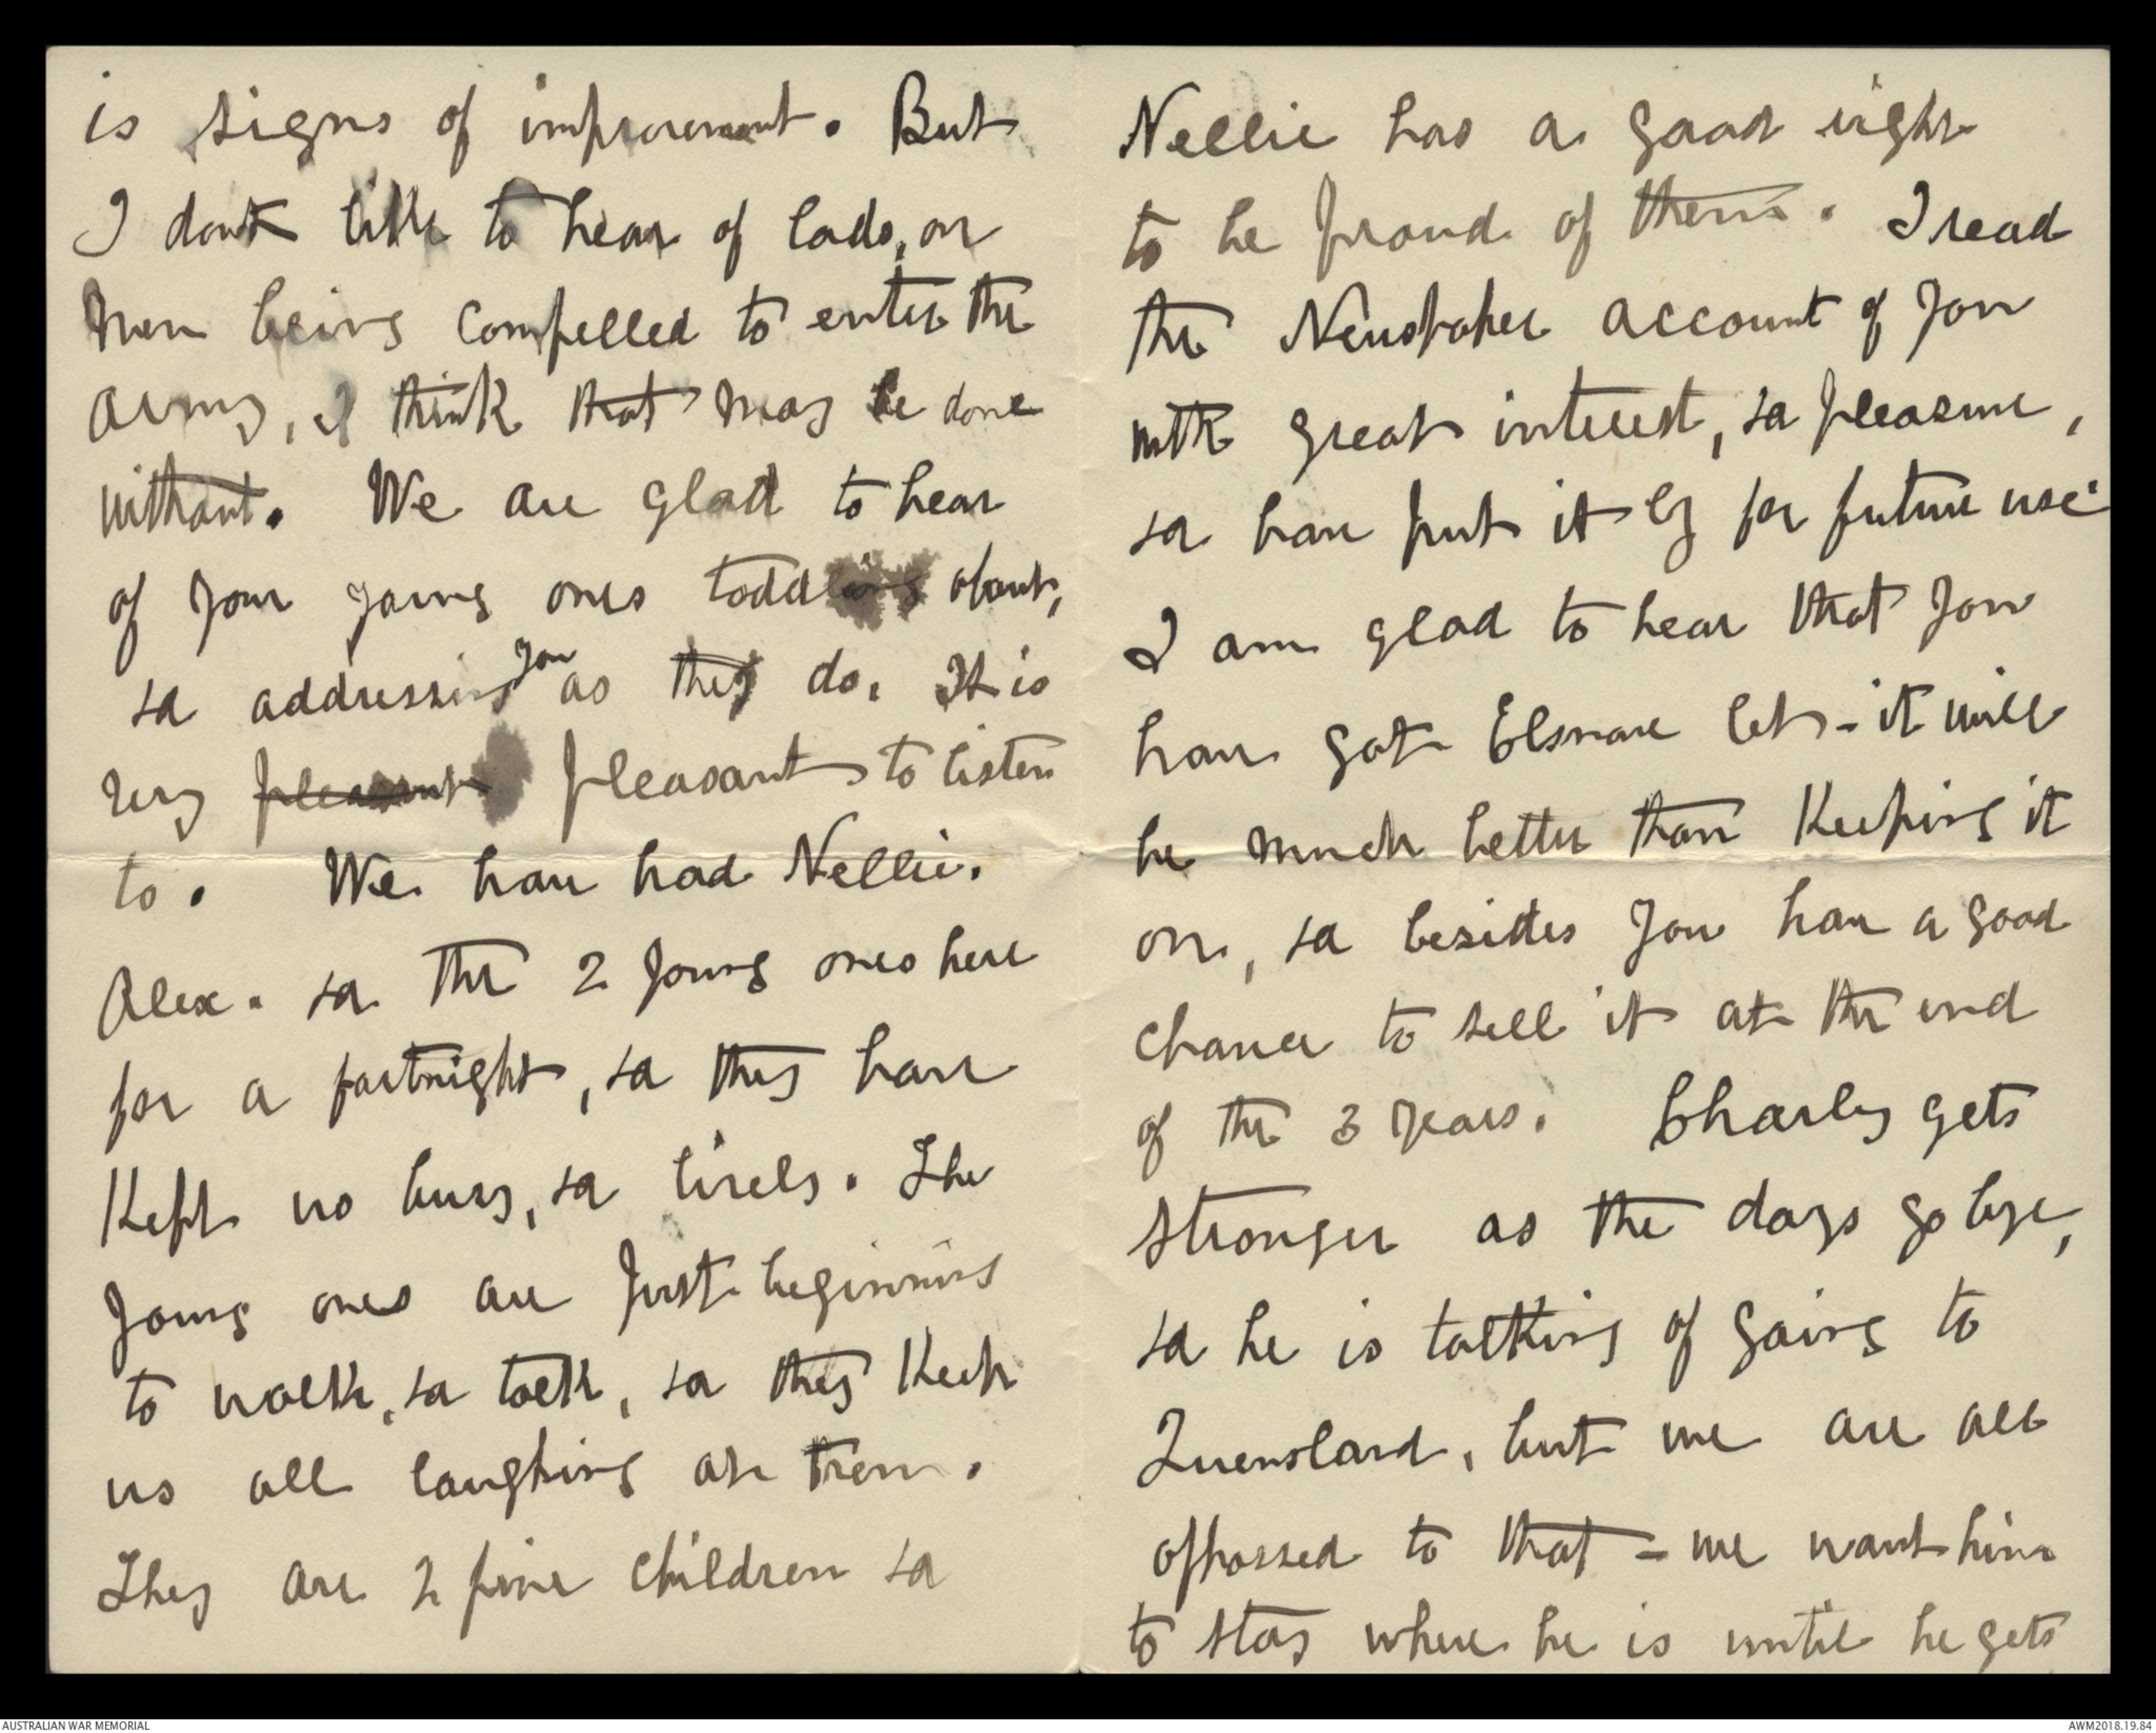 is signs of improvement. But
I dont like to hear of lads, or
men being compelled to enter the
army, I think that may be done
without. We are glad to hear
of your young ones toddling about,
& addressing you as they do. It is
very pleasant pleasant to listen
to. We have had Nellie.
Alex. & the 2 young ones here
for a fortnight, & they have
kept us busy, & lively. The
young ones are just beginning
to walk, & talk, & they keep
us all laughing at them.
They are 2 fine children &
Nellie has a good right
to be proud of them. I read
the Newspaper account of you
with great interest, & pleasure,
& have put it by for future use.
I am glad to hear that you
have got Elsmore let - it will
be much better than keeping it
on, & besides you have a good
chance to sell it at the end
of the 3 years. Charley gets
stronger as the days go bye,
& he is talking of going to
Queensland, but we are all
oppossed to that - we want him
to stay where he is until he gets
AUSTRALIAN WAR MEMORIAL
AWM2018.19.84